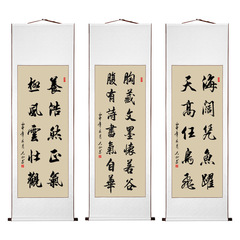 海闊凭魚躍
天高任鳥飛
胸藏文墨懷若谷
腹有詩書氣自華
養浩然正氣
極風雲壯觀